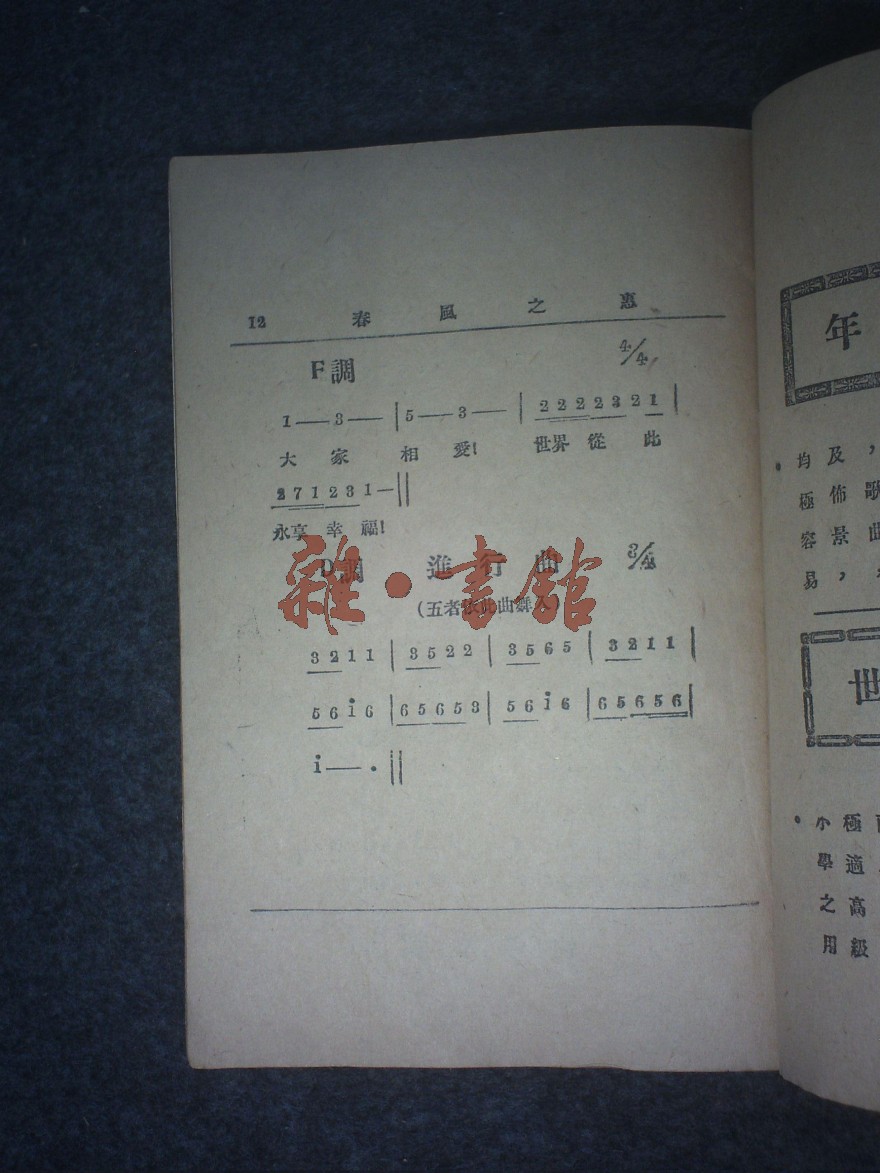 12 春風之惠
F調 4/4
1—3— | 5—3— | 2 2 2 2 3 2 1 |
大家 相愛! 世界從此
2 7 1 2 3 1— ||
永享幸福!
D調 進行曲 3/4
(五者依此曲舞入)
3 2 1 1 | 3 5 2 2 | 3 5 6 5 | 3 2 1 1 |
5 6 i 6 | 6 5 6 5 3 | 5 6 i 6 | 6 5 6 5 6 |
i — · ||
雜·書館
年
均及,
極佈歌
容景曲
易,
世
小極
學適
之高
用級